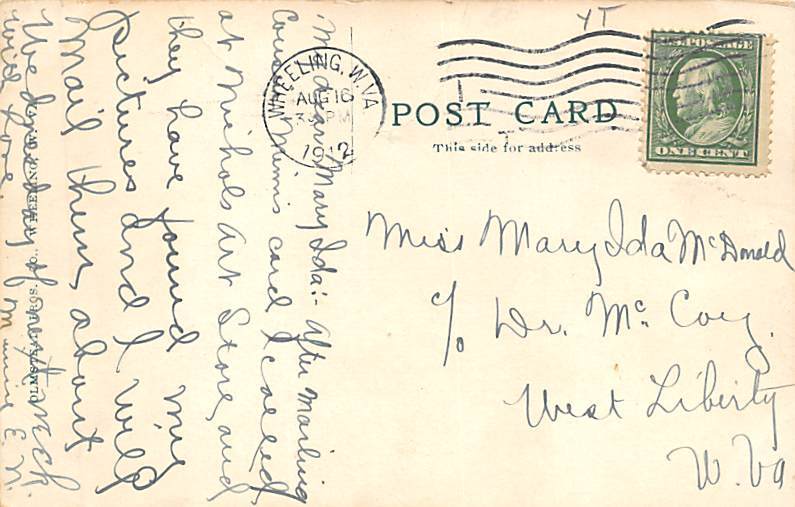 YT
WHEELING, W. VA.
AUG 16
3 PM
1912
U.S. POSTAGE
ONE CENT
POST CARD
This side for address
Miss Mary Ida McDonald
c/o Dr. McCoy.
West Liberty
W. Va
My dear Mary Ida:- After mailing
Cousin Minnie card I called
at Nichols Art Store, and
they have found my
pictures and I will
mail them about
Wednesday of next week
with love. Minnie E. N.
OLMSTEAD BROS. CO., WHEELING, W.